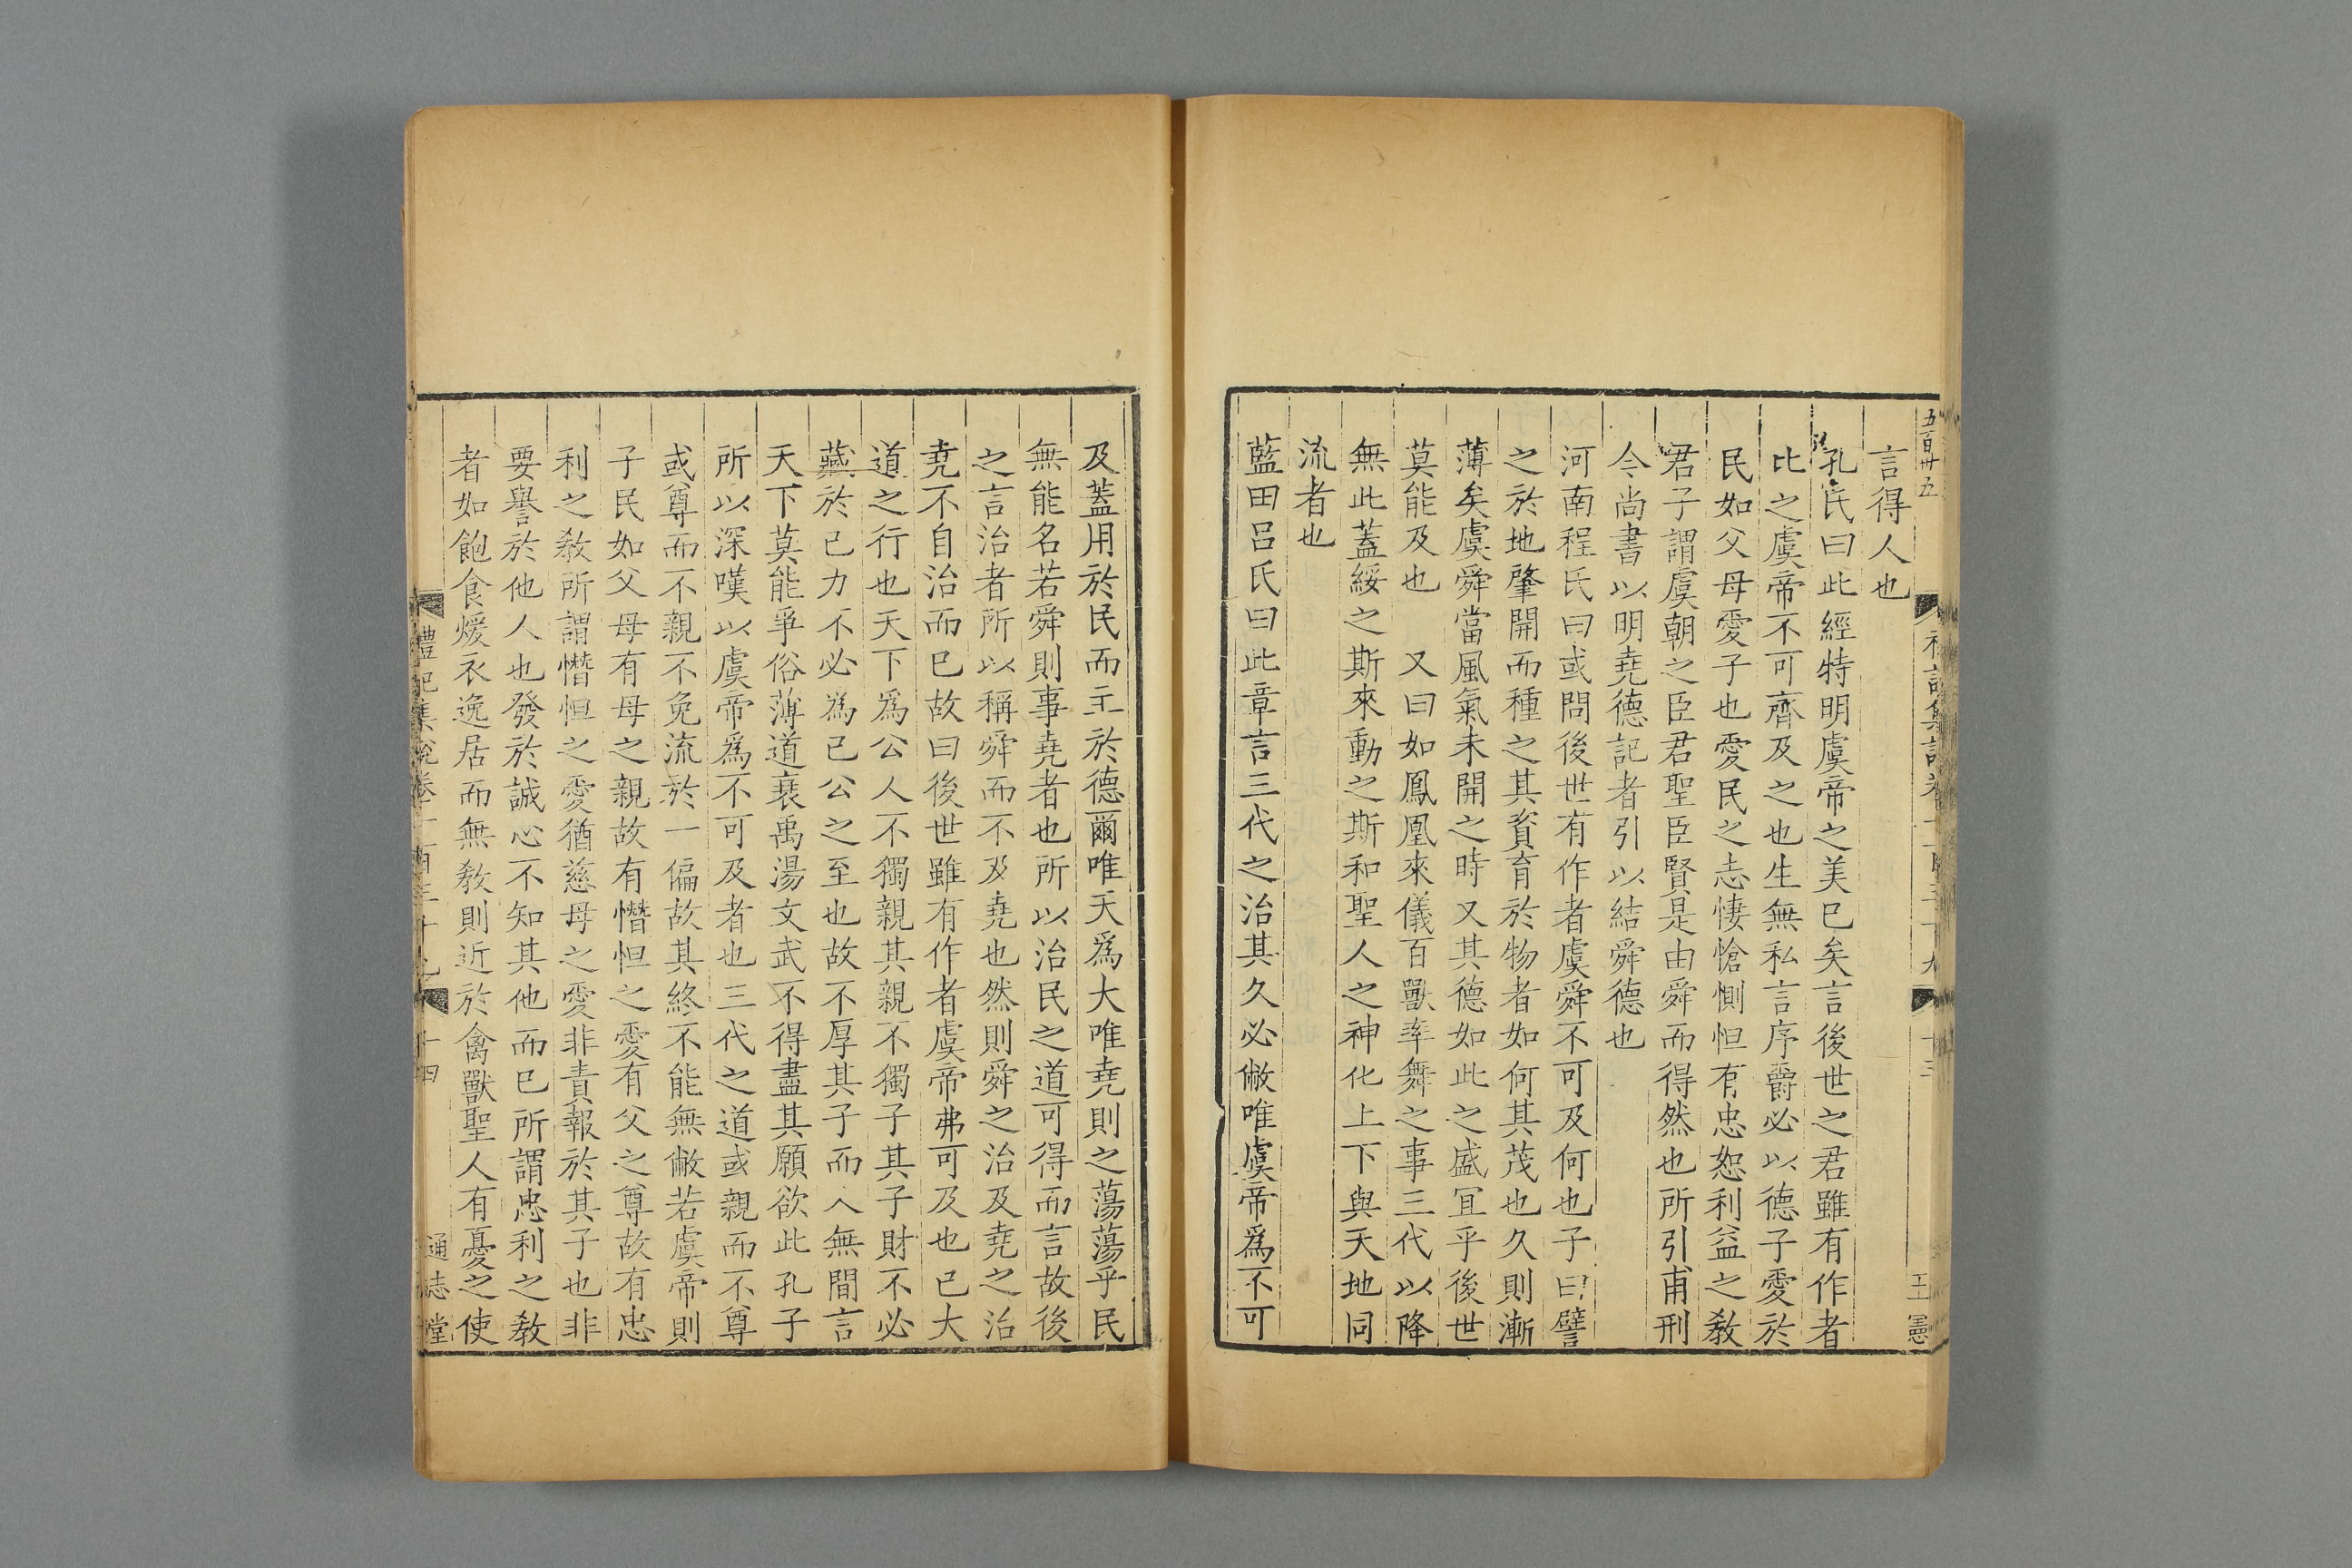 五百卅五
十三
王憲
言得人也
孔氏曰此經特明虞帝之美巳矣言後世之君雖有作者
比之虞帝不可齊及之也生無私言序爵必以德子愛於
民如父母愛子也愛民之志悽愴惻怛有忠恕利益之敎
君子謂虞朝之臣君聖臣賢是由舜而得然也所引甫刑
今尚書以明堯德記者引以結舜德也
河南程氏曰或問後世有作者虞舜不可及何也子曰譬
之於地肇開而種之其資育於物者如何其茂也久則漸
薄矣虞舜當風氣未開之時又其德如此之盛宜乎後世
莫能及也 又曰如鳳凰來儀百獸率舞之事三代以降
無此蓋綏之斯來動之斯和聖人之神化上下與天地同
流者也
藍田呂氏曰此章言三代之治其久必敝唯虞帝爲不可
及蓋用於民而王於德爾唯天爲大唯堯則之蕩蕩乎民
無能名若舜則事堯者也所以治民之道可得而言故後
之言治者所以稱舜而不及堯也然則舜之治及堯之治
堯不自治而巳故曰後世雖有作者虞帝弗可及也已大
道之行也天下爲公人不獨親其親不獨子其子財不必
藏於己力不必為己公之至也故不厚其子而人無間言
天下莫能爭俗薄道衰禹湯文武不得盡其願欲此孔子
所以深嘆以虞帝爲不可及者也三代之道或親而不尊
或尊而不親不免流於一偏故其終不能無敝若虞帝則
子民如父母有母之親故有憯怛之愛有父之尊故有忠
利之敎所謂憯怛之愛猶慈母之愛非責報於其子也非
要譽於他人也發於誠心不知其他而巳所謂忠利之敎
者如飽食煖衣逸居而無敎則近於禽獸聖人有憂之使
禮記集說卷一百三十九
十四
通志堂